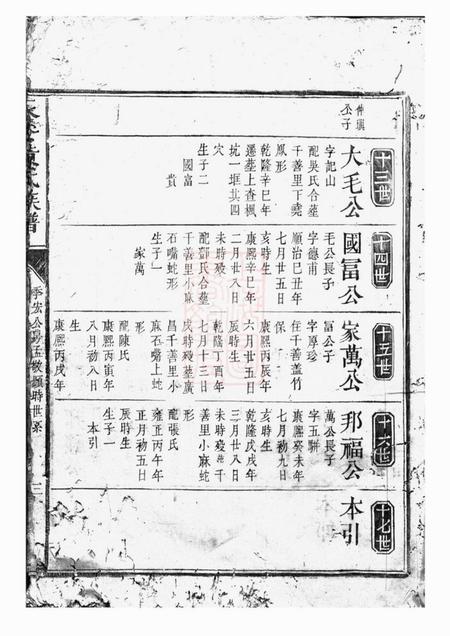 十三世
仲瑱
公子
大毛公
字記山
配吳氏合墓
千善里下堯
鳳形
乾隆辛巳年
遷墓上查楓
坑一堆其四
穴
生子二
國富
貴
十四世
國冨公
毛公長子
字德甫
順治己丑年
七月廿五日
亥時生
康熙辛巳年
二月廿八日
未時殁
配鄧氏合墓
千善里小麻
石嘴蛇形
生子一
家萬
十五世
家萬公
富公子
字厚珍
住千善盖竹
保
康熙丙辰年
六月廿五日
辰時生
乾隆丁酉年
七月十三日
戌時殁墓廣
昌千善里小
麻石嘴上蛇
形
配陳氏
康熙丙寅年
八月初八日
生
康熙丙戌年
十六世
邦福公
萬公長子
字五駢
康熙癸未年
七月初九日
亥時生
乾隆戊戌年
三月廿八日
未時殁墓千
善里小麻蛇
形
配張氏
雍正丙午年
正月初五日
辰時生
生子一
本引
十七世
本引
氏族譜
季宏公
時世系
三